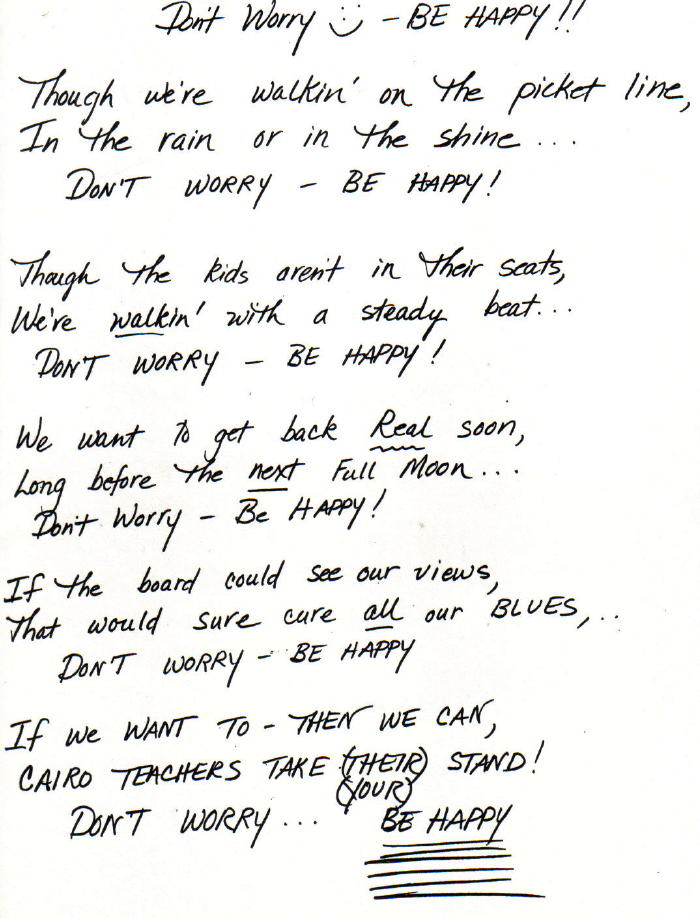 Don't Worry - BE HAPPY!!
Though we're walkin' on the picket line,
In the rain or in the shine...
DON'T WORRY - BE HAPPY!
Though the kids aren't in their seats,
We're walkin' with a steady beat...
DON'T WORRY - BE HAPPY!
We want to get back Real soon,
Long before the next Full Moon...
Don't Worry - Be HAPPY!
If the board could see our views,
That would sure cure all our BLUES,..
DON'T WORRY - BE HAPPY
If we WANT TO - THEN WE CAN,
CAIRO TEACHERS TAKE (THEIR) STAND!
(YOUR)
DON'T WORRY... BE HAPPY